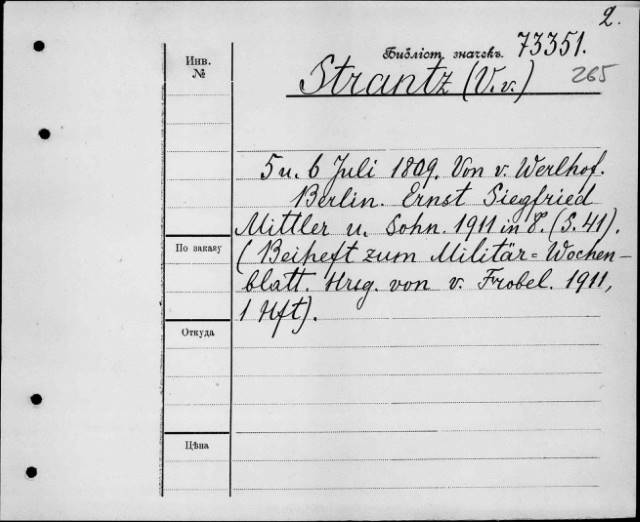 2.
Библіот. значекъ. 73351.
Инв.
№
Strantz (V. v.) 265
5 u. 6 Juli 1809. Von v. Werlhof.
Berlin. Ernst Siegfried
Mittler u. Sohn. 1911 in 8°. (S. 41).
По заказу
(Beiheft zum Militär=Wochen-
blatt. Hrsg. von v. Frobel. 1911,
1 Hft).
Откуда
Цѣна